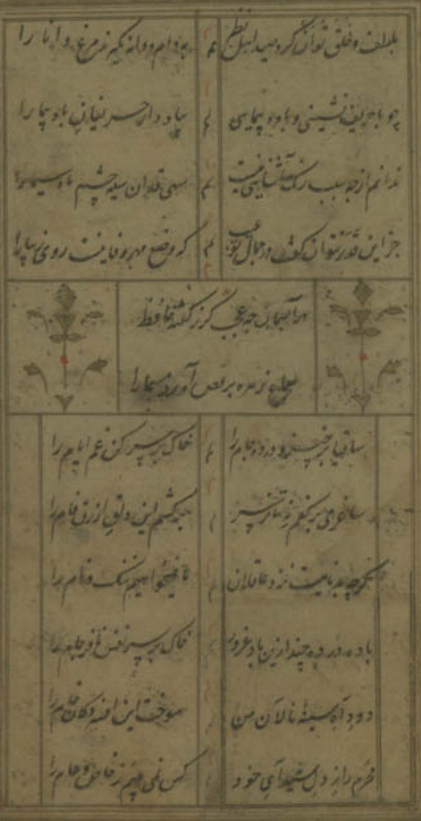 بلطف و خلق توان کرد صید اهل نظر بدام و دانه نگیرند مرغ دانا را
چو با حریف نشینی و باده پیمایی بیاد دار حریفان باد پیما را
ندانم از چه سبب رنک آشنایی نیست سهی قدان سیه چشم ماه سیما را
جز این قدر نتوان گفت در جمال تو عیب که وضع مهر و وفا نیست روی زیبا را
در آسمان چه عجب گر ز گفته حافظ
سماع زهره برقص آورد مسیحا را
ساقیا برخیز و در ده جام را خاک بر سر کن غم ایام را
ساغر می بر کفم نه تا ز بر بر کشم این دلق ازرق فام را
گرچه بدنامیست نزد عاقلان ما نمیخواهیم ننک و نام را
باده در ده چند ازین باد غرور خاک بر سر نفس نافرجام را
دود آه سینه نالان من سوخت این افسردکان خام را
محرم راز دل شیدای خود کس نمی بینم ز خاص و عام را